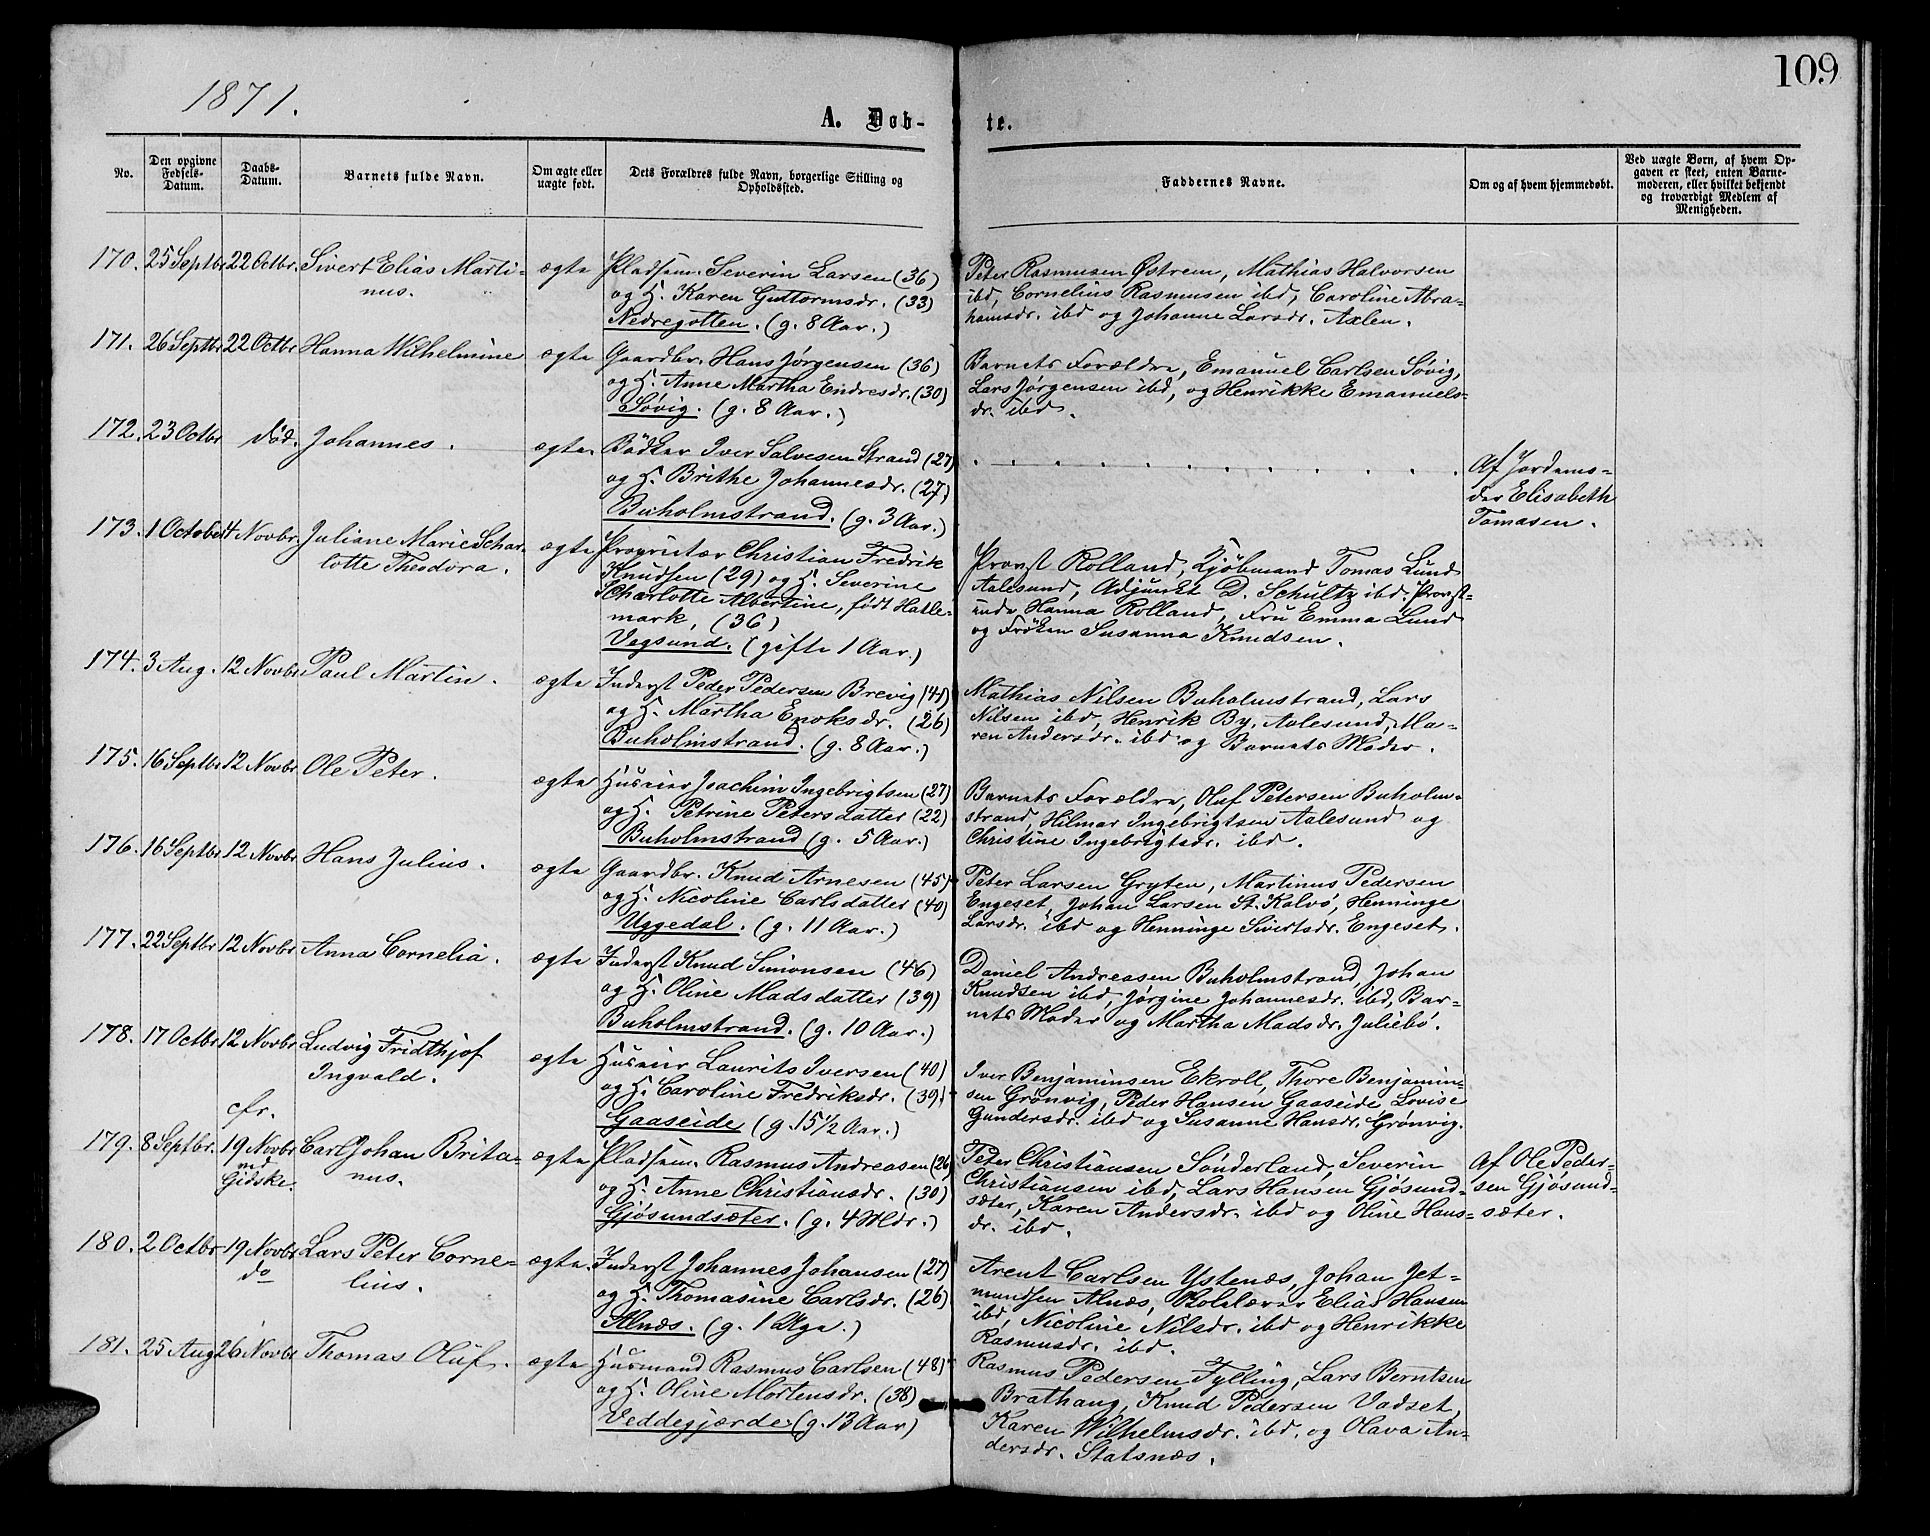 1871.
109
A. Døb-
te.
No.
Den opgivne Fødsels-Datum.
Daabs-Datum.
Barnets fulde Navn.
Om ægte eller uægte født.
Dets Forældres fulde Navn, borgerlige Stilling og Opholdssted.
Faddernes Navne.
Om og af hvem hjemmedøbt.
Ved uægte Børn, af hvem Opgaven er skeet, enten Barnemoderen, eller hvilket bekjendt og troværdigt Medlem af Menigheden.
170. 25 Septbr. 22 Octbr. Sivert Elias Marti-
nus.
ægte
Pladsm. Severin Larsen (36)
og H. Karen Guttormsdr. (33)
Nedregotten. (g. 8 Aar.)
Peter Rasmusen Østrem, Mathias Halvorsen
ibd, Cornelius Rasmusen ibd, Caroline Abra-
hamsdr. ibd og Johanne Larsdr. Axlen.
171. 26 Septbr 22 Octbr Hanna Wilhelmine
ægte
Gaardbr. Hans Jørgensen (36)
og H. Anne Martha Endresdr. (30)
Søvig. (g. 8 Aar.)
Barnets Forældre, Emanuel Carlsen Søvig,
Lars Jørgensen ibd, og Henrikke Emanuels-
dr. ibd.
172. 23 Octbr død. Johannes.
ægte.
Bødker Iver Salvesen Strand (27)
og H. Brithe Johannesdr. (27)
Buholmstrand. (g. 3 Aar.)
Af Jordemo-
der Elisabeth
Tomasen.
173. 1 October 4 Novbr. Juliane Marie Schar-
lotte Theodora.
ægte
Proprietær Christian Fredrik
Knudsen (29) og H. Severine
Scharlotte Albertine, født Hatle-
mark, (36)
Vegsund. (gifte 1 Aar.)
Provst Rolland, Kjøbmand Tomas Lund
Aalesund, Adjunkt D. Schultz ibd. Provst-
inde Hanna Rolland, Fru Emma Lund
og Frøken Susanna Knudsen.
174. 3 Aug. 12 Novbr Paul Martin.
ægte
Inderst Peder Pedersen Brevig (41)
og H. Martha Enoksdr. (26)
Buholmstrand. (g. 8 Aar.)
Mathias Nilsen Buholmstrand, Lars
Nilsen ibd, Henrik By, Aalesund, Ma-
ren Andersdr. ibd og Barnets Moder.
175. 16 Septbr 12 Novbr. Ole Peter.
ægte
Huseier Joachim Ingebrigtsen (27)
og H. Petrine Petersdatter (22)
Buholmstrand (g. 5 Aar.)
Barnets Forældre, Oluf Petersen Buholm-
strand, Hilmar Ingebrigtsen Aalesund og
Christine Ingebrigtsdr. ibd.
176. 16 Septbr. 12 Novbr. Hans Julius.
ægte
Gaardbr. Knud Arnesen (45)
og H. Nicoline Carlsdatter (40)
Uggedal. (g. 11 Aar.)
Peter Larsen Gryten, Martinus Pedersen
Engeset, Johan Larsen St. Kalvø, Henninge
Larsdr. ibd og Henninge Sivertsdr. Engeset.
177. 22 Septbr 12 Novbr. Anna Cornelia.
ægte
Inderst Knud Simonsen (46)
og H. Oline Madsdatter (39)
Buholmstrand. (g. 10 Aar.)
Daniel Andreasen Buholmstrand, Johan
Knudsen ibd, Jørgine Johannesdr. ibd, Bar-
nets Moder og Martha Madsdr. Juliebø.
178. 17 Octbr 12 Novbr Ludvig Fridthjof
Ingvald.
ægte
Huseier Laurits Iversen (40)
og H. Caroline Fredriksdr. (39)
Gaaseide (g. 15 1/2 Aar.)
Iver Benjaminsen Ekroll, Thore Benjamin-
sen Grønvig, Peder Hansen Gaaseide, Lovise
Gundersdr. ibd og Susanne Hansdr. Grønvig.
cfr.
179. 8 Septbr. 19 Novbr Carl Johan Brita-
ved
Gidske.
nus.
ægte
Pladsm. Rasmus Andreasen (26)
og H. Anne Christiansdr. (30)
Gjøsundsæter. (g. 4 Mdr.)
Peter Christiansen Sønderland, Severin
Christiansen ibd, Lars Hansen Gjøsund-
sæter, Karen Andersdr. ibd og Oline Hans-
dr. ibd.
Af Ole Peder-
sen Gjøsund-
sæter.
180. 2 Octbr 19 Novbr Lars Peter Corne-
do
lius.
ægte.
Inderst Johannes Johansen (27)
og H. Thomasine Carlsdr. (26)
Alnæs. (g. 1 Uge.)
Arent Carlsen Ystenæs, Johan Jet-
mundsen Alnæs, Skolelærer Elias Hansen
ibd, Nicoline Nilsdr. ibd og Henrikke
Rasmusdr. ibd.
181. 25 Aug 26 Novbr Thomas Oluf.
ægte
Husmand Rasmus Carlsen (48)
og H. Oline Mortensdr. (38)
Veddegjærde. (g. 13 Aar)
Rasmus Pedersen Fylling, Lars Berntsen
Brathaug, Knud Pedersen Vadset,
Karen Wilhelmsdr. ibd. og Olava An-
dersdr. Statsnæs.